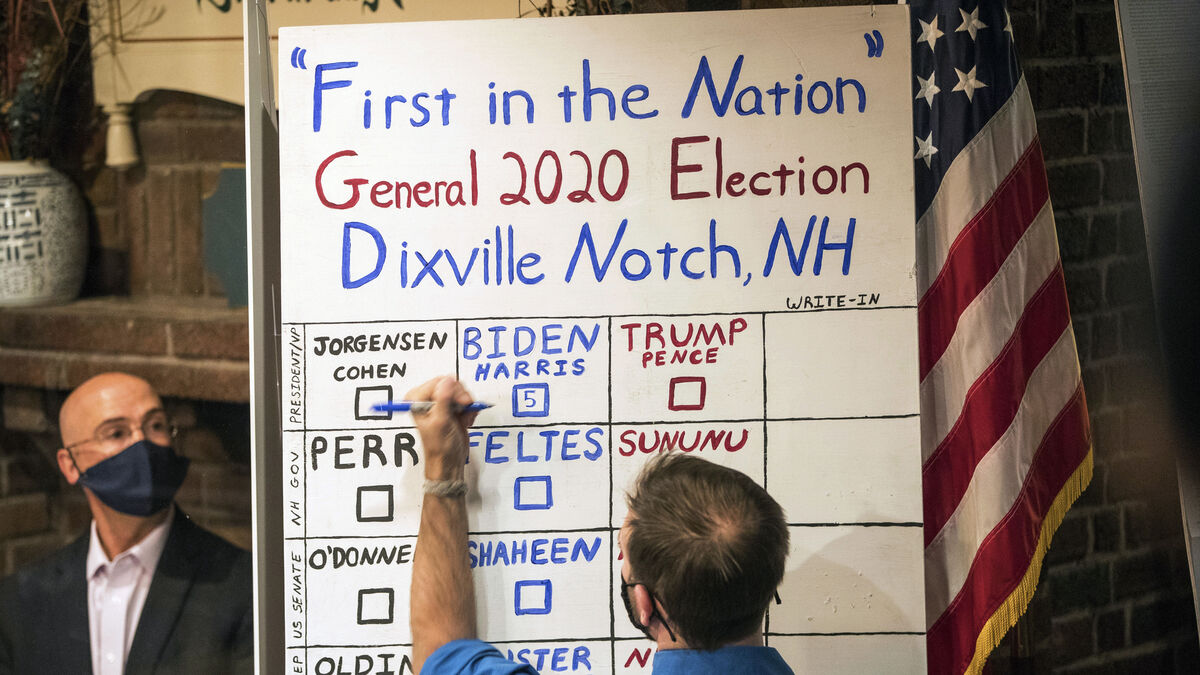 "First in the Nation"
General 2020 Election
Dixville Notch, NH
WRITE-IN
PRESIDENT/VP
JORGENSEN
COHEN
BIDEN
HARRIS
5
TRUMP
PENCE
NH GOV
PERR
FELTES
SUNUNU
US SENATE
O'DONNE
SHAHEEN
EP
OLDIN
STER
N